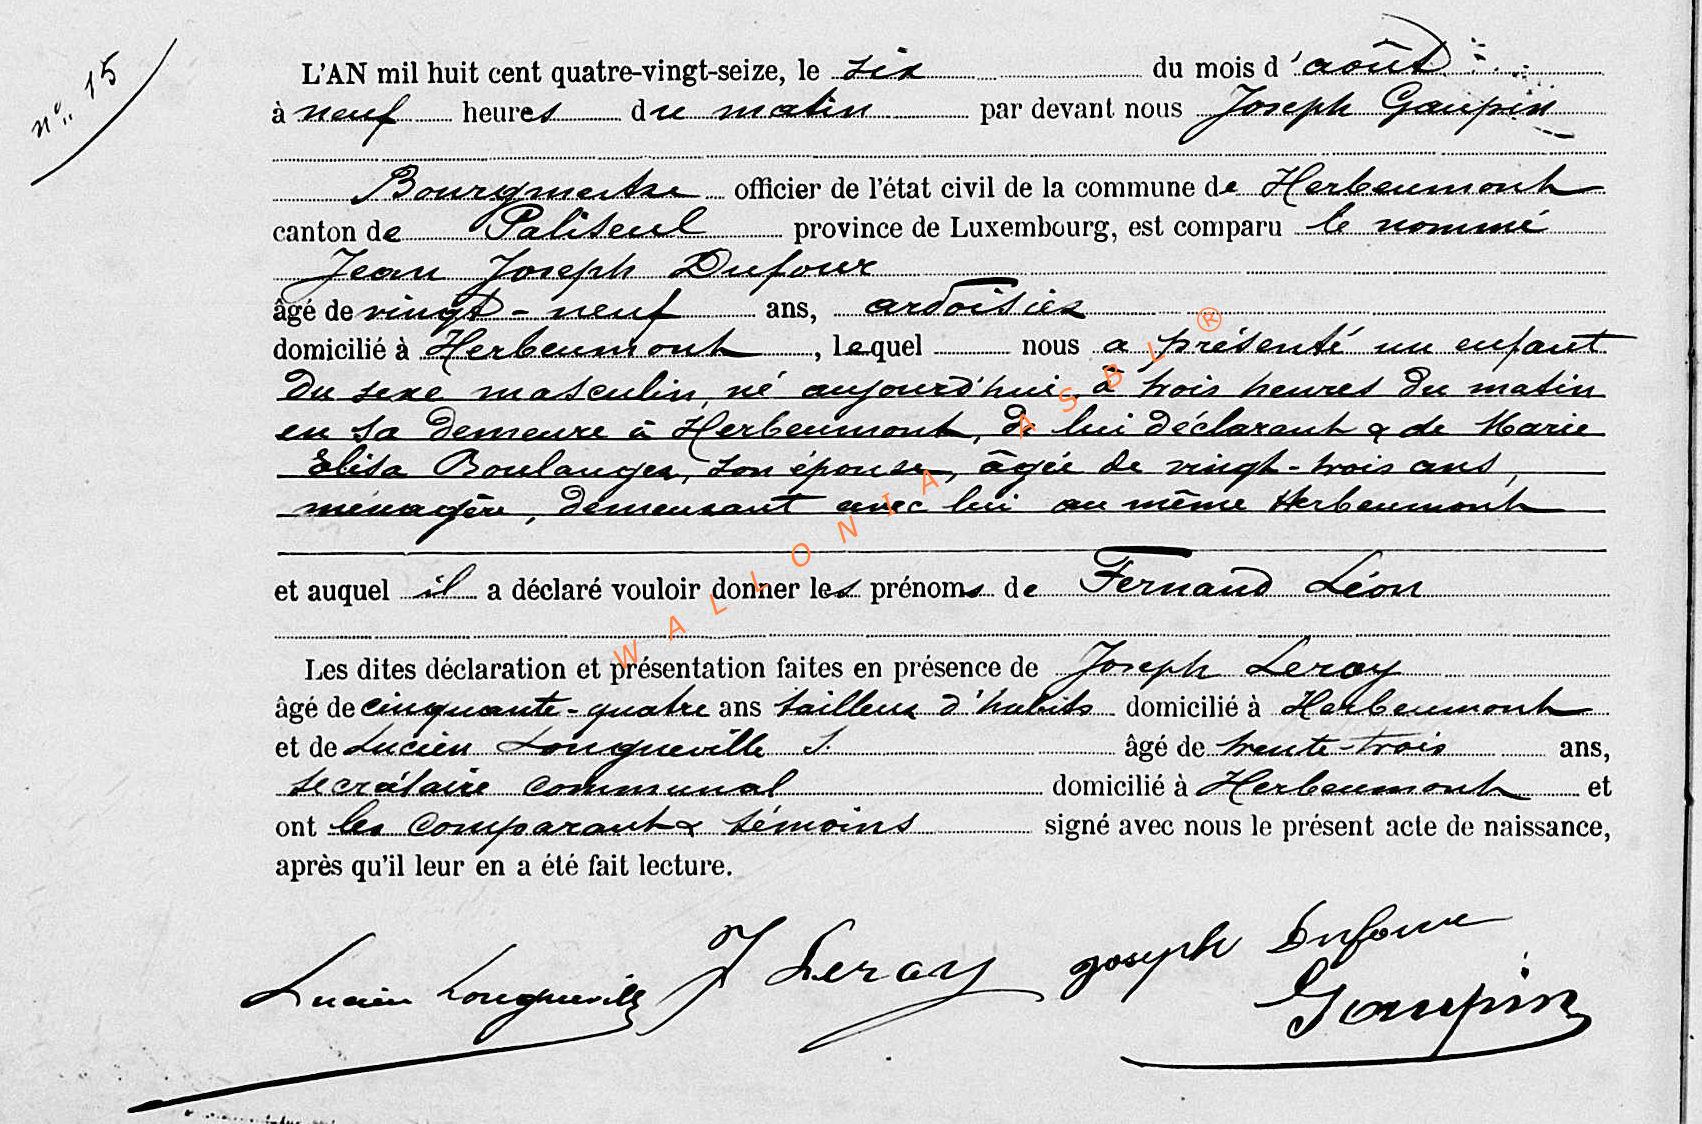 n°. 15
L'AN mil huit cent quatre-vingt-seize, le six du mois d'août
à neuf heures du matin par devant nous Joseph Gaupin
Bourgmestre officier de l'état civil de la commune de Herbeumont
canton de Paliseul province de Luxembourg, est comparu le nommé
Jean Joseph Dufour
âgé de vingt-neuf ans, ardoisier
domicilié à Herbeumont, lequel nous a présenté un enfant
du sexe masculin, né aujourd'hui à trois heures du matin
en sa demeure à Herbeumont, de lui déclarant & de Marie
Elisa Boulanger, son épouse, âgée de vingt-trois ans,
ménagère, demeurant avec lui au même Herbeumont
et auquel il a déclaré vouloir donner les prénoms de Fernand Léon
Les dites déclaration et présentation faites en présence de Joseph Leroy
âgé de cinquante-quatre ans tailleur d'habits domicilié à Herbeumont
et de Lucien Longueville âgé de trente-trois ans,
secrétaire communal domicilié à Herbeumont et
ont les comparant & témoins signé avec nous le présent acte de naissance,
après qu'il leur en a été fait lecture.
Lucien Longueville J Leroy Joseph Dufour
Gaupin
WALLONIA ASBL ®